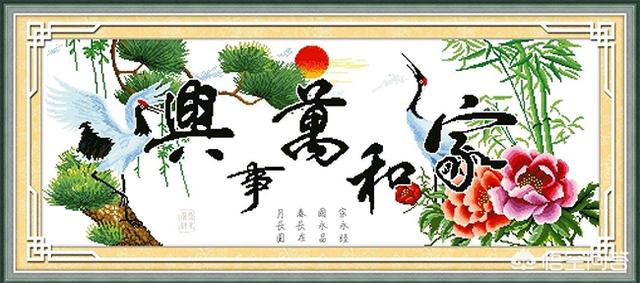 家和萬事興
家永
國永昌
春長在
月長圓
悟空问答